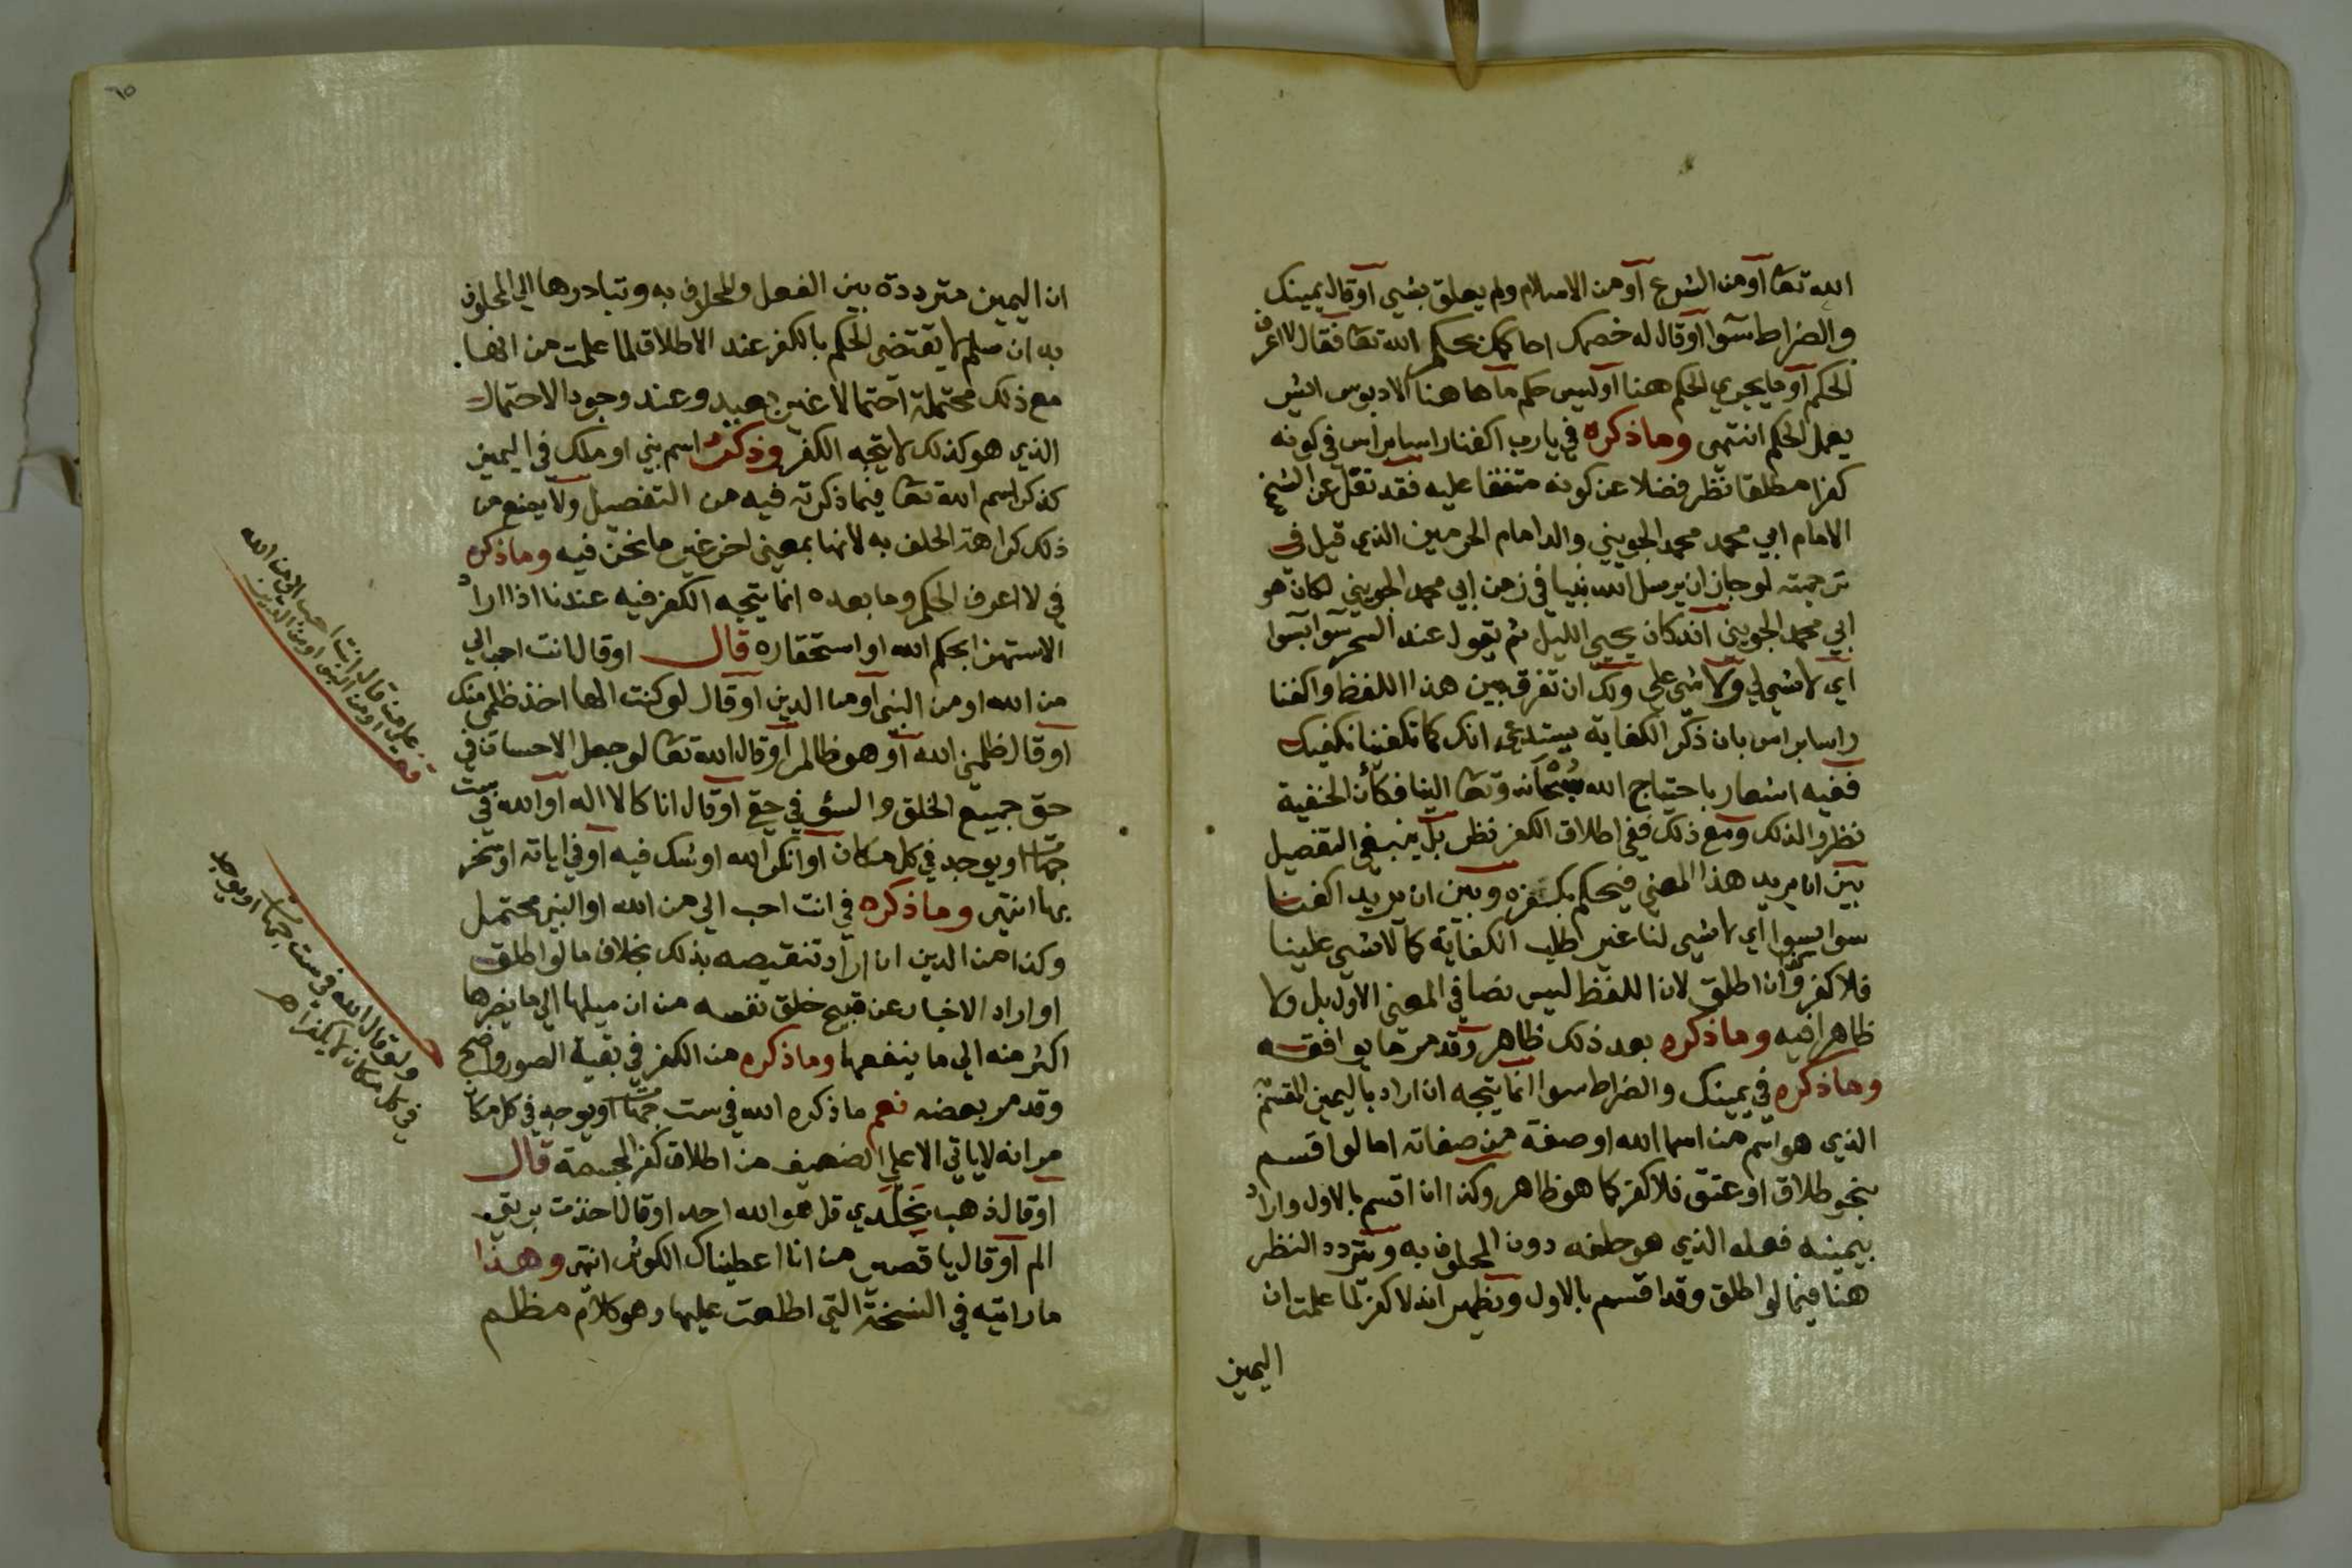 الله تعا او من الشرع او من الاسلام ولم يعلق بشي او قال يمينك
والضراط سوا او قال له خصمك احاكمك بحكم الله تعا فقال لا اعرف
الحكم او ما يجري الحكم هنا او ليس حكم ما هاهنا الا دبوس ايش
يعمل الحكم انتهى وما ذكره في يا رب اكفنا راسا براس في كونه
كفرا مطلقا نظر فضلا عن كونه متفقا عليه فقد نقل عن الشيخ
الامام ابي محمد محمد الجويني والد امام الحرمين الذي قيل في
ترجمته لو جاز ان يرسل الله نبيا في زمن ابي محمد الجويني لكان هو
ابي محمد الجويني انه كان يحيي الليل ثم يقول عند السحر سوا بسوا
اي لا شي لي ولا شي علي ولك ان تفرق بين هذا اللفظ واكفنا
راسا براس بان ذكر الكفاية يستدعي انك كما تكفينا نكفيك
ففيه اشعار باحتياج الله سبحانه وتعا الينا فكأن الحنفية
نظروا لذلك ومع ذلك ففي اطلاق الكفر نظر بل ينبغي التفصيل
بين ان يريد هذا المعني فيحكم بكفره وبين ان يريد اكفنا
سوا بسوا اي لا شي لنا غير طلب الكفاية كما لا شي علينا
فلا كفر وكذا ان اطلق لان اللفظ ليس نصا في المعنى الاول بل ولا
ظاهرا فيه وما ذكره بعد ذلك ظاهر وقد مر ما يوافقه
وما ذكره في يمينك والضراط سوا انما يتجه ان اراد باليمين المقسم
الذي هو اسم من اسما الله او صفة من صفاته اما لو اقسم
بنحو طلاق او عتق فلا كفر كما هو ظاهر وكذا ان اقسم بالاول واراد
بيمينه فعله الذي هو حلفه دون المحلوف به ويتردد النظر
هنا فيما لو اطلق وقد اقسم بالاول ويظهر انه لا كفر لما علمت ان
اليمين
ان اليمين مترددة بين الفعل والمحلوف به وتبادرها الي المحلوف
به ان سلم لا يقتضي الحكم بالكفر عند الاطلاق لما علمت من انها
مع ذلك محتملة احتمالا غير بعيد وعند وجود الاحتمال
الذي هو كذلك لا يتجه الكفر وذكر اسم نبي او ملك في اليمين
كذكر اسم الله تعا فيما ذكرته فيه من التفصيل ولا يمنع من
ذلك كراهة الحلف به لانها بمعنى اخر غير ما نحن فيه وما ذكره
في لا اعرف الحكم وما بعده انما يتجه الكفر فيه عندنا اذا اراد
الاستهزا بحكم الله او استحقاره قال او قال انت احب الي
من الله او من النبي او من الدين او قال لو كنت الها اخذ ظلمي منك
او قال ظلمني الله او هو ظالم او قال الله تعا لو جعل الاحسان في
حق جميع الخلق والسؤ في حقي او قال انا كالاله او الله في ست
جهات او يوجد في كل مكان او انكر الله او شك فيه او في اياته او سخر
بها انتهى وما ذكره في انت احب الي من الله او النبي محتمل
وكذا من الدين ان اراد تنقيصه بذلك بخلاف ما لو اطلق
او اراد الاخبار عن قبيح خلق نفسه من ان ميلها الي ما يضرها
اكثر منه الي ما ينفعها وما ذكره من الكفر في بقية الصور واضح
وقد مر بعضه نعم ما ذكره الله في ست جهات او يوجد في كل مكان
مر انه لا ياتي الا علي الضعيف من اطلاق كفر المجسمة قال
او قال ذهب بجلدي قل هو الله احد او قال اخذت بريق
الم او قال يا قصير من انا اعطيناك الكوثر انتهى وهذا
ما رايته في النسخة التي اطلعت عليها وهو كلام مظلم
من قال انت احب الي من الله
او من النبي او من الدين
ولو قال الله في ست جهات او يوجد
في كل مكان لا يكفر اهـ
٦٥